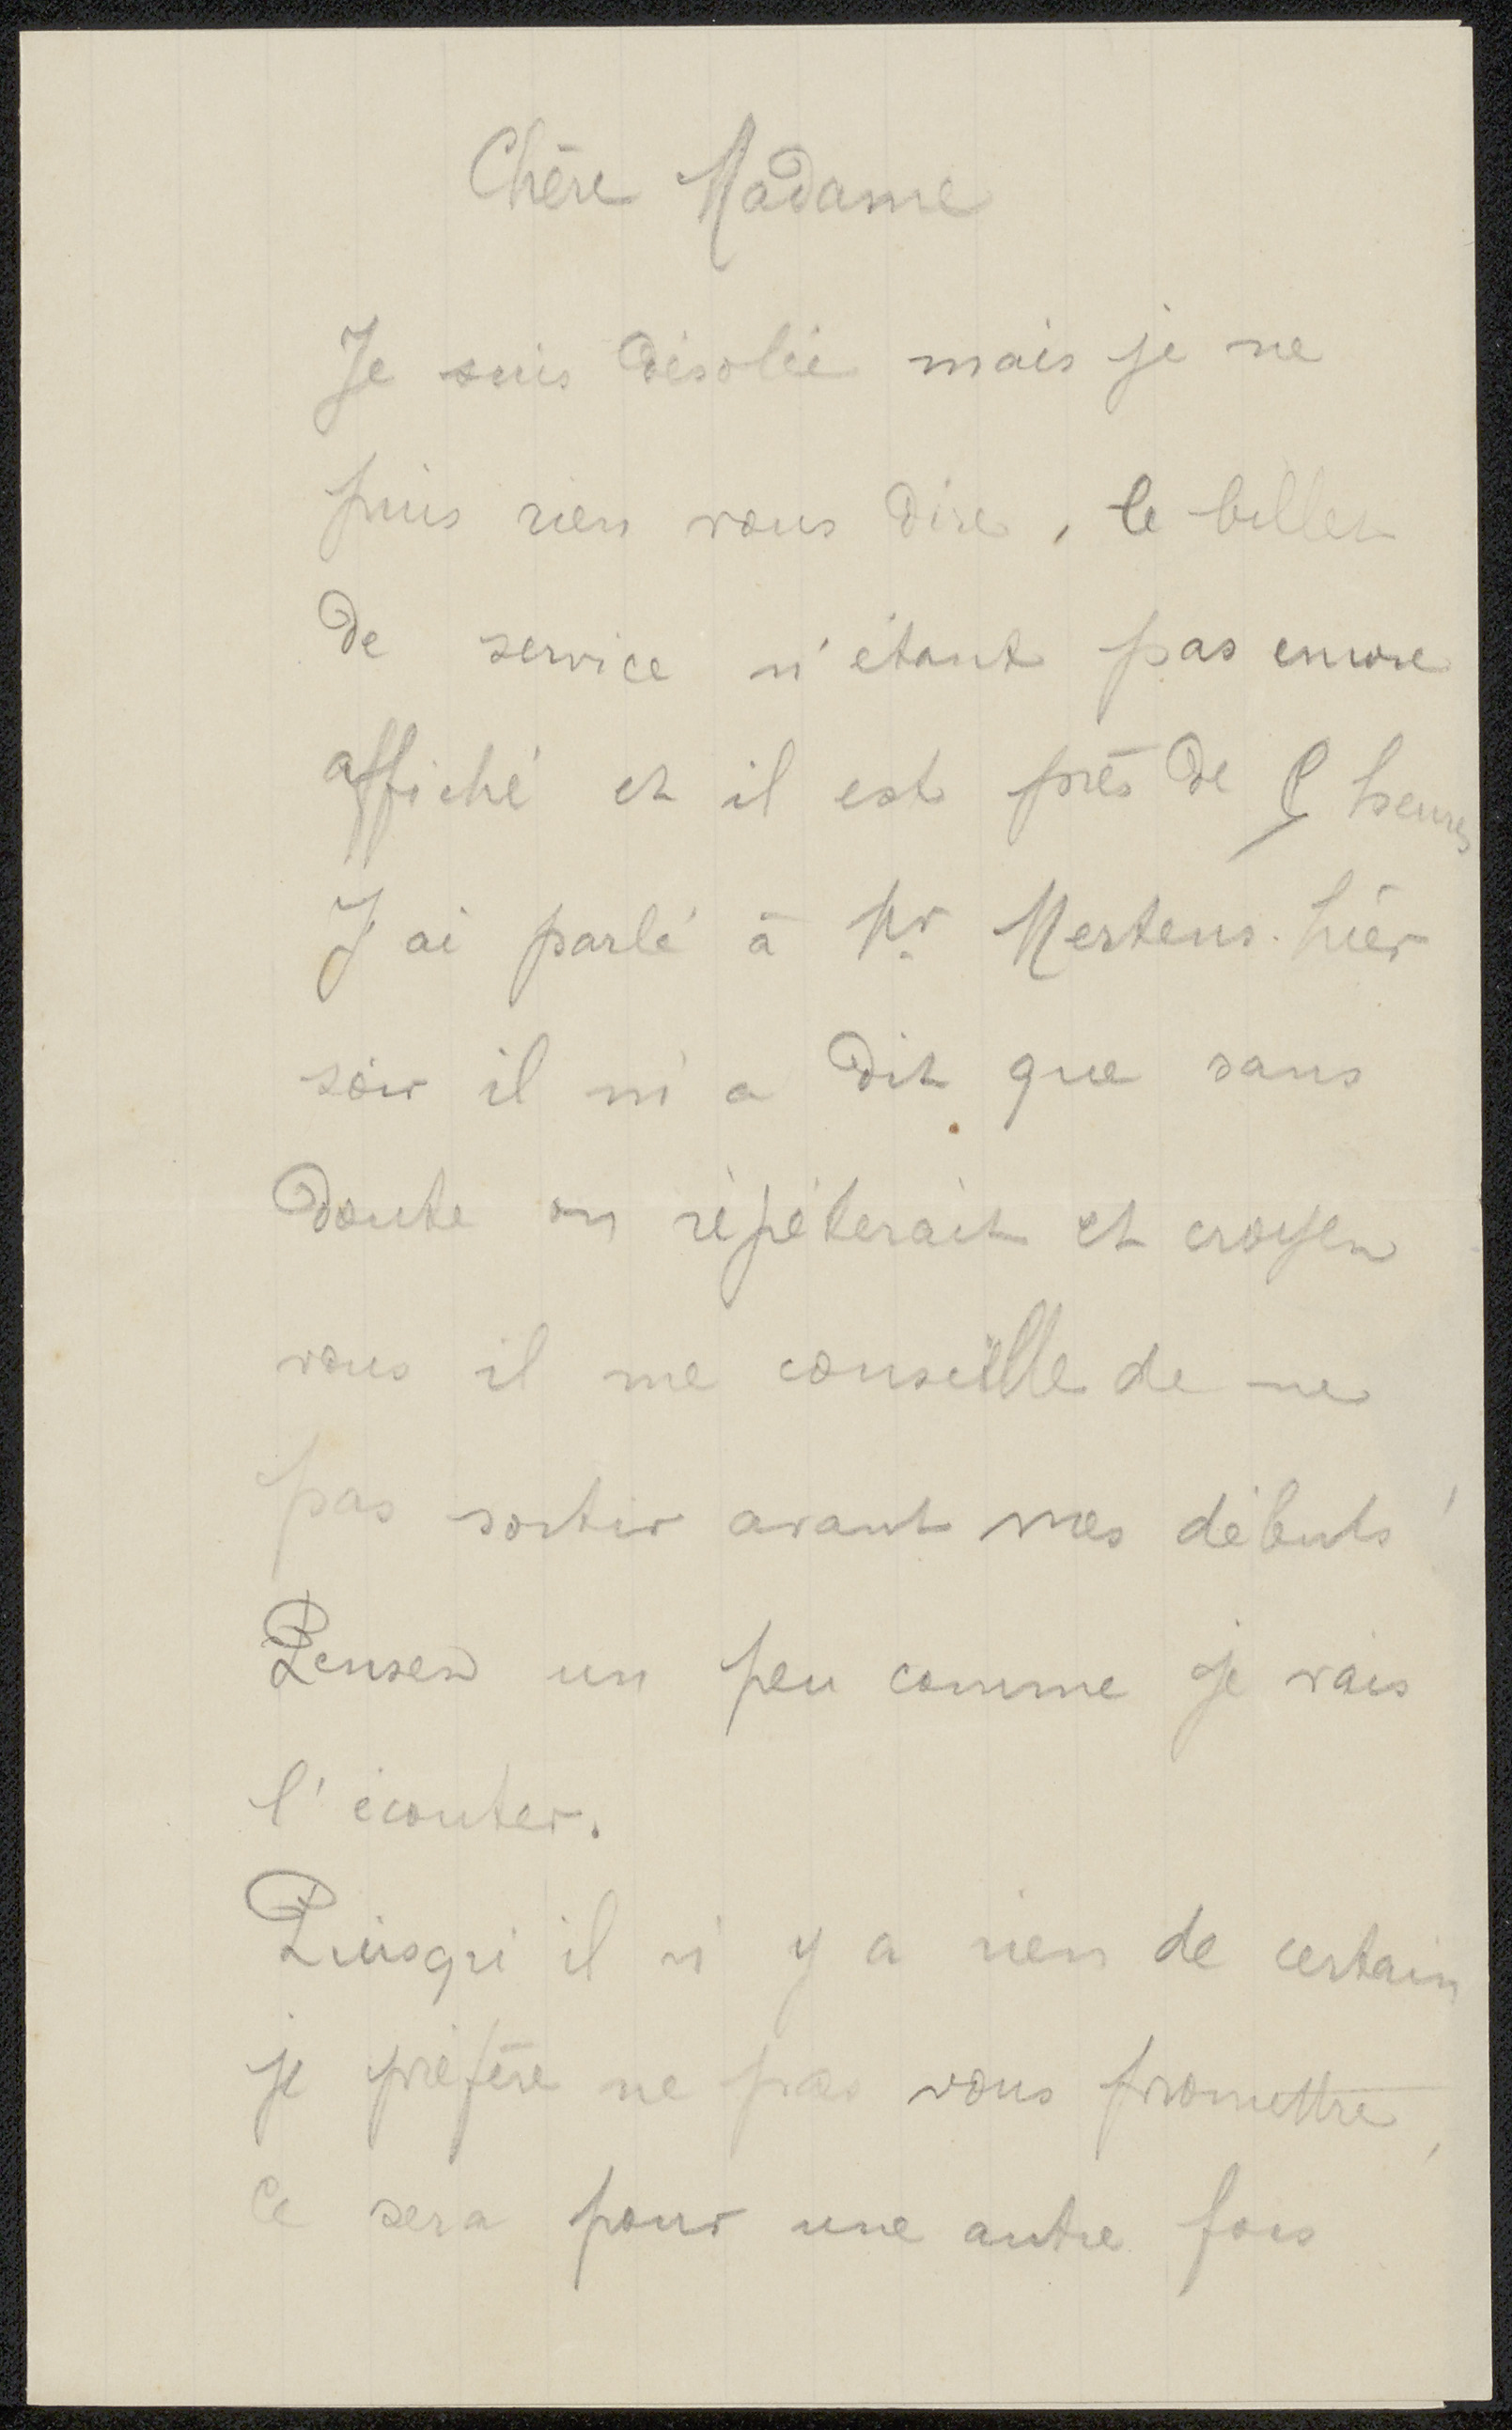 Chère Madame
Je suis désolée mais je ne
puis rien vous dire, le billet
de service n'étant pas encore
affiché et il est près de heures
J'ai parlé à Mr Mertens. hier
soir il m'a dit que sans
doute on répéterait et croyez
vous il me conseille de ne
pas sortir avant mes débuts!
Pensez un peu comme je vais
l'écouter.
Puisqu'il n'y a rien de certain
je préfère ne pas vous promettre,
Ce sera pour une autre fois